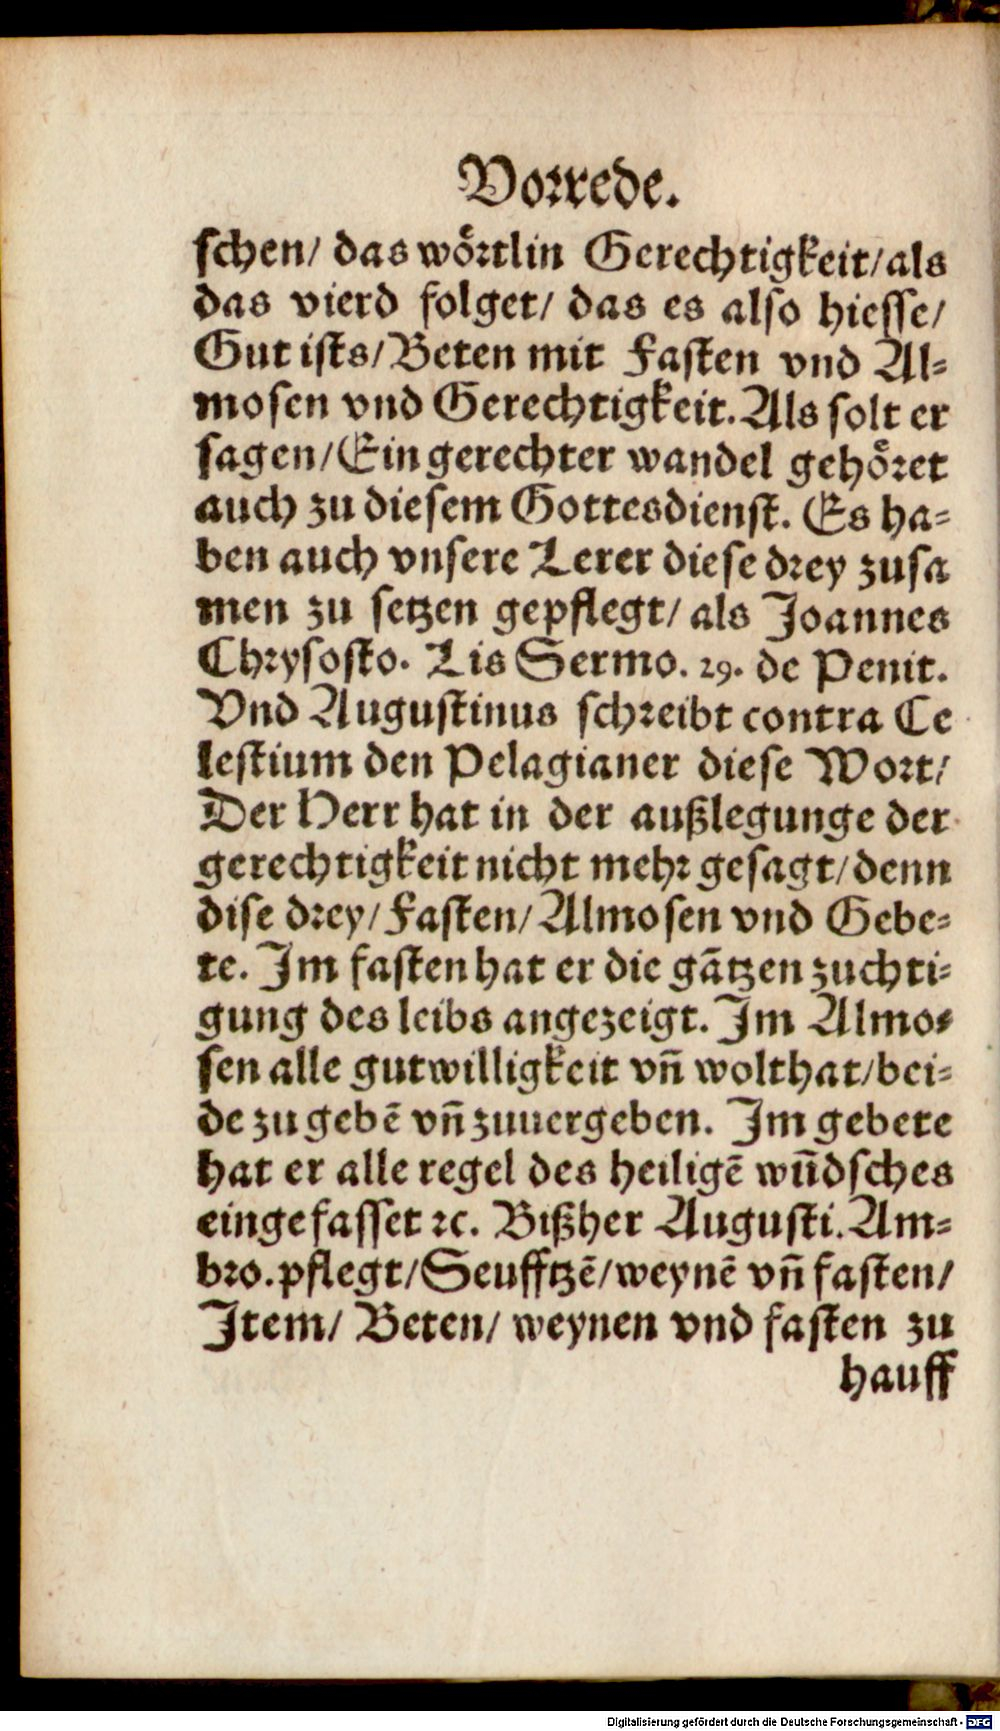 Vorrede.
schen/ das wörtlin Gerechtigkeit/als
das vierd folget/ das es also hiesse/
Gut ists/Beten mit Fasten vnd Al-
mosen vnd Gerechtigkeit. Als solt er
sagen/Ein gerechter wandel gehöret
auch zu diesem Gottesdienst. Es ha-
ben auch vnsere Lerer diese drey zusa
men zu setzen gepflegt/ als Joannes
Chrysosto. Lis Sermo. 29. de Penit.
Vnd Augustinus schreibt contra Ce
lestium den Pelagianer diese Wort/
Der Herr hat in der außlegunge der
gerechtigkeit nicht mehr gesagt/denn
dise drey/Fasten/Almosen vnd Gebe-
te. Im fasten hat er die gātzen zuchti-
gung des leibs angezeigt. Im Almo-
sen alle gutwilligkeit vñ wolthat/bei-
de zu gebē vñ zuuergeben. Im gebete
hat er alle regel des heiligē wūdsches
eingefasset ꝛc. Bißher Augusti. Am-
bro. pflegt/Seufftzē/weynē vñ fasten/
Item/ Beten/ weynen vnd fasten zu
hauff
Digitalisierung gefördert durch die Deutsche Forschungsgemeinschaft - DFG